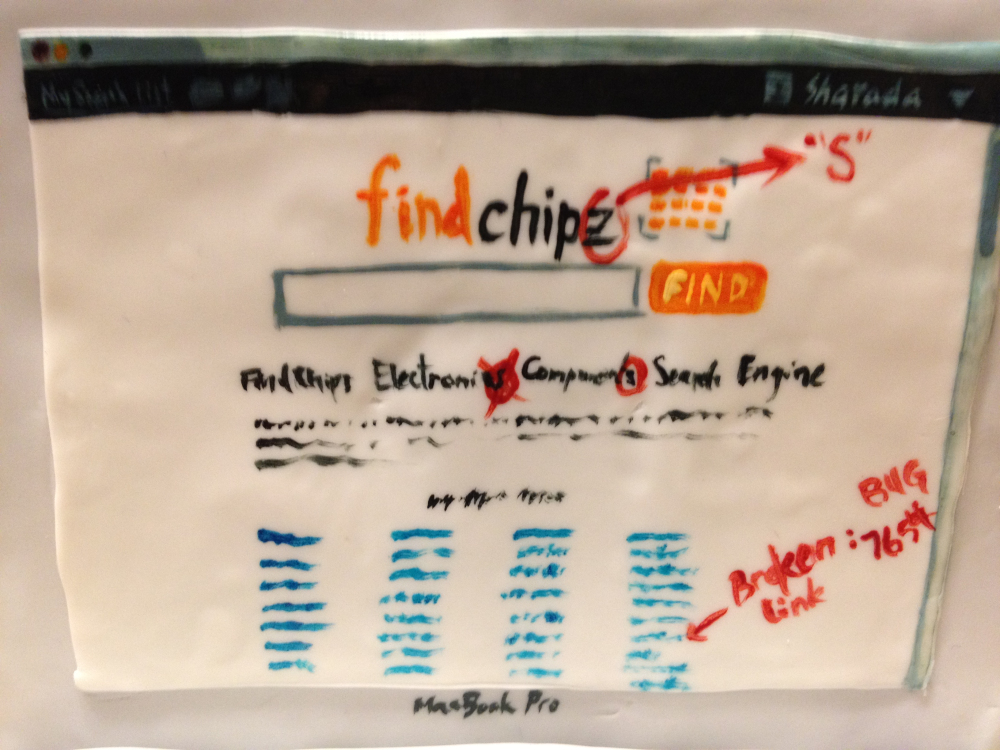 My Search List
Sharada
findchipz
"S"
FIND
FindChips Electronics Components Search Engine
BUG
Broken : 7654
Link
MacBook Pro